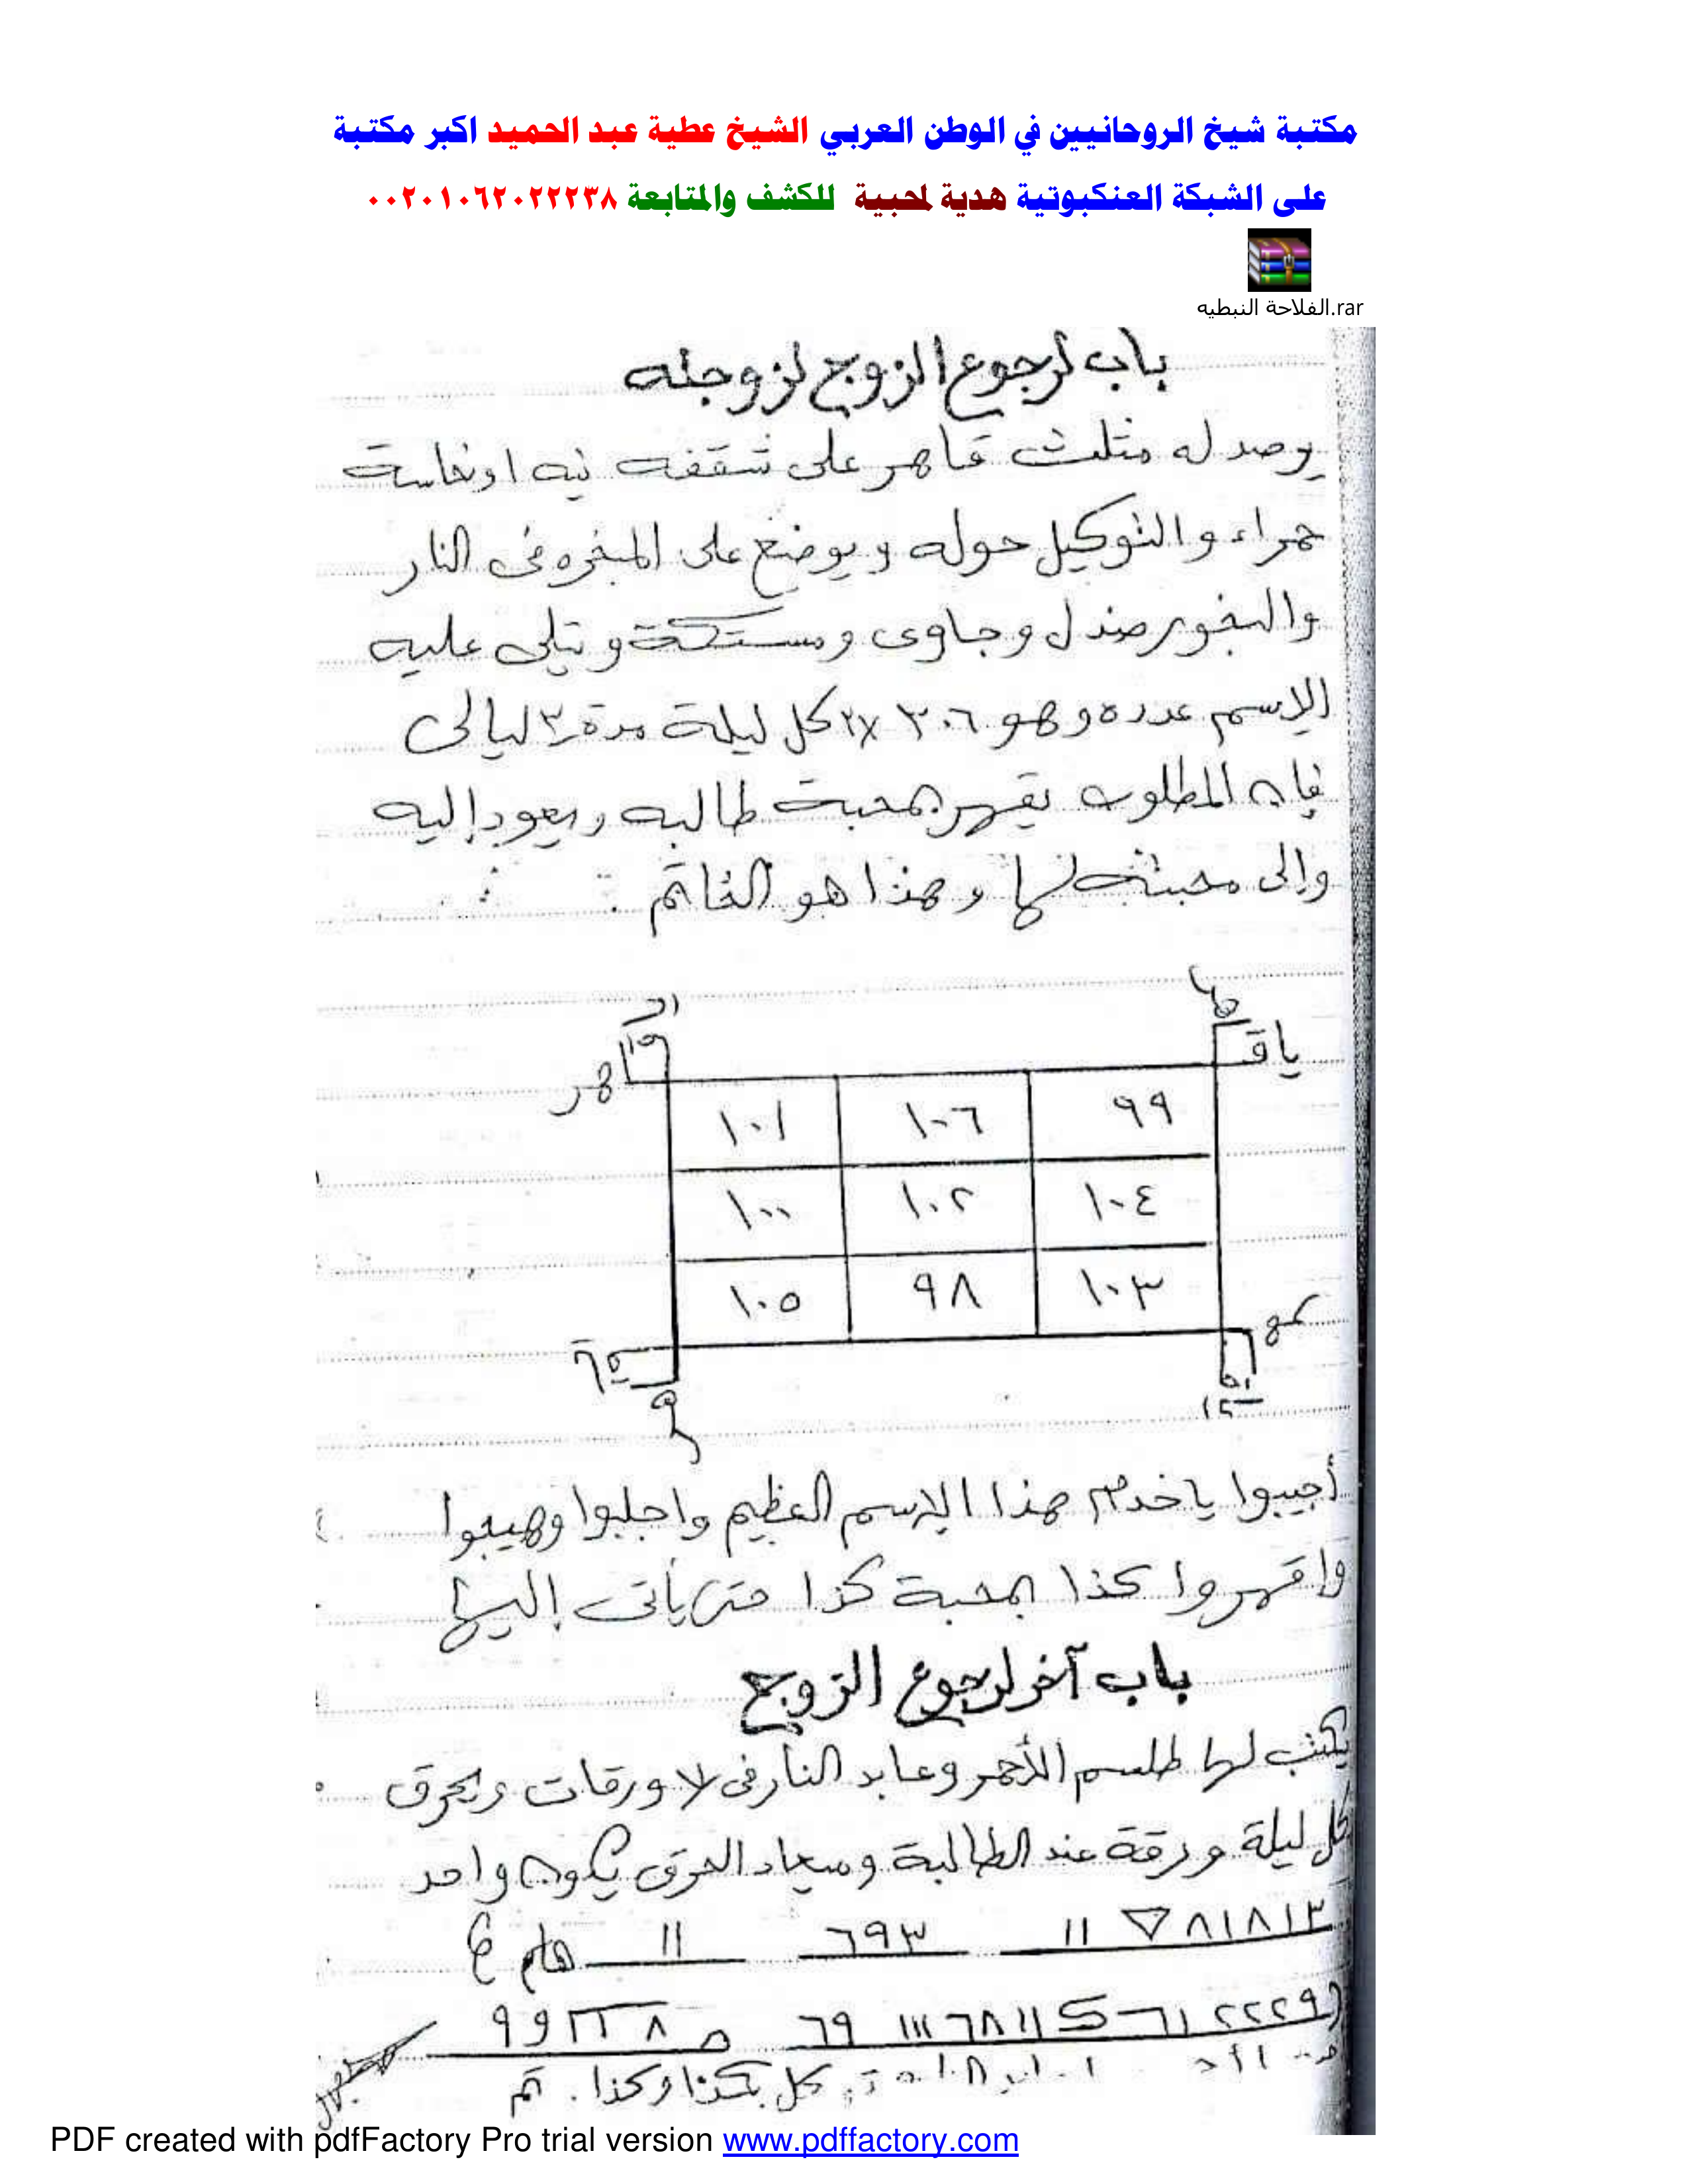 مكتبة شيخ الروحانيين في الوطن العربي الشيخ عطية عبد الحميد اكبر مكتبة
على الشبكة العنكبوتية هدية لمحبية للكشف والمتابعة ٠٠٢٠١٠٦٢٠٢٢٢٣٨
الفلاحة النبطيه.rar
باب لرجوع الزوج لزوجته
يرصد له مثلث قاهر على شقفه نيه او نحاسة
حمراء والتوكيل حوله ويوضع على المبخره فى النار
والبخور صندل وجاوى ومستكة ويتلى عليه
الاسم عدده وهو ٣٠٦ كل ليلة مدة ٣ ليالى
فإن المطلوب يقهر بمحبة طالبه ويعود إليه
وإلى محبته لها وهذا هو الخاتم :
ياق
اهر
٩٩ ١٠٦ ١٠١
١٠٤ ١٠٢ ١٠٠
١٠٣ ٩٨ ١٠٥
أجيبوا ياخدام هذا الاسم العظيم واجلبوا وهيجوا
واقهروا كذا بمحبة كذا حتى يأتى إليها
باب آخر لرجوع الزوج
يكتب لها طلسم الأحمر وعابد النار فى ٧ ورقات ويحرق
كل ليلة ورقة عند الطالبة وميعاد الحرق يكون واحد
٨١٨١٣ ١١ ٦٩٣ ١١
كل بكذا وكذا . تم
PDF created with pdfFactory Pro trial version www.pdffactory.com